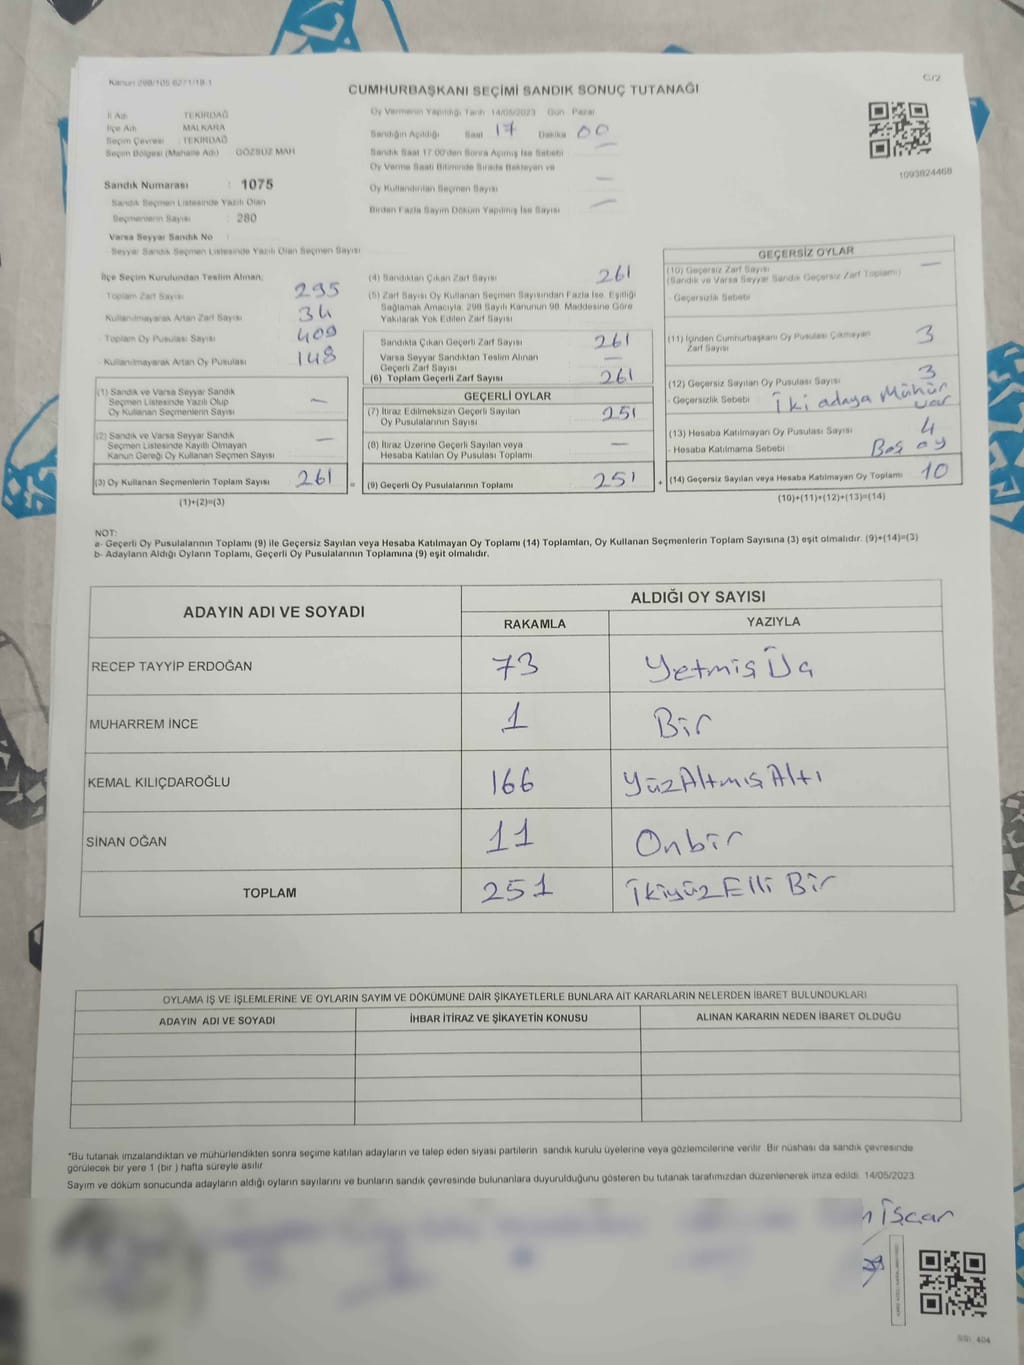 Kanun 298/105 6271/18-1
C/2
CUMHURBAŞKANI SEÇİMİ SANDIK SONUÇ TUTANAĞI
İl Adı : TEKİRDAĞ
İlçe Adı : MALKARA
Seçim Çevresi : TEKİRDAĞ
Seçim Bölgesi (Mahalle Adı) : GÖZSÜZ MAH
Sandık Numarası : 1075
Sandık Seçmen Listesinde Yazılı Olan
Seçmenlerin Sayısı : 280
Varsa Seyyar Sandık No :
- Seyyar Sandık Seçmen Listesinde Yazılı Olan Seçmen Sayısı
Oy Vermenin Yapıldığı Tarih 14/05/2023 Gün Pazar
Sandığın Açıldığı Saat 17 Dakika 00
Sandık Saat 17:00'den Sonra Açılmış İse Sebebi
Oy Verme Saati Bitiminde Sırada Bekleyen ve
Oy Kullandırılan Seçmen Sayısı —
Birden Fazla Sayım Döküm Yapılmış İse Sayısı —
1093824468
İlçe Seçim Kurulundan Teslim Alınan;
- Toplam Zarf Sayısı 295
- Kullanılmayarak Artan Zarf Sayısı 34
- Toplam Oy Pusulası Sayısı 409
- Kullanılmayarak Artan Oy Pusulası 148
(1) Sandık ve Varsa Seyyar Sandık
Seçmen Listesinde Kayıtlı Olup
Oy Kullanan Seçmenlerin Sayısı —
(2) Sandık ve Varsa Seyyar Sandık
Seçmen Listesinde Kayıtlı Olmayan
Kanun Gereği Oy Kullanan Seçmen Sayısı —
(3) Oy Kullanan Seçmenlerin Toplam Sayısı 261
(1)+(2)=(3)
(4) Sandıktan Çıkan Zarf Sayısı 261
(5) Zarf Sayısı Oy Kullanan Seçmen Sayısından Fazla İse, Eşitliği
Sağlamak Amacıyla, 298 Sayılı Kanunun 98. Maddesine Göre
Yakılarak Yok Edilen Zarf Sayısı
Sandıkta Çıkan Geçerli Zarf Sayısı 261
Varsa Seyyar Sandıktan Teslim Alınan
Geçerli Zarf Sayısı —
(6) Toplam Geçerli Zarf Sayısı 261
GEÇERLİ OYLAR
(7) İtiraz Edilmeksizin Geçerli Sayılan
Oy Pusulalarının Sayısı 251
(8) İtiraz Üzerine Geçerli Sayılan veya
Hesaba Katılan Oy Pusulası Toplamı —
= (9) Geçerli Oy Pusulalarının Toplamı 251
GEÇERSİZ OYLAR
(10) Geçersiz Zarf Sayısı —
(Sandık ve Varsa Seyyar Sandık Geçersiz Zarf Toplamı)
- Geçersizlik Sebebi
(11) İçinden Cumhurbaşkanı Oy Pusulası Çıkmayan
Zarf Sayısı 3
(12) Geçersiz Sayılan Oy Pusulası Sayısı 3
- Geçersizlik Sebebi İki adaya Mühür
var
(13) Hesaba Katılmayan Oy Pusulası Sayısı 4
- Hesaba Katılmama Sebebi Boş oy
+ (14) Geçersiz Sayılan veya Hesaba Katılmayan Oy Toplamı 10
(10)+(11)+(12)+(13)=(14)
NOT:
a- Geçerli Oy Pusulalarının Toplamı (9) ile Geçersiz Sayılan veya Hesaba Katılmayan Oy Toplamı (14) Toplamları, Oy Kullanan Seçmenlerin Toplam Sayısına (3) eşit olmalıdır. (9)+(14)=(3)
b- Adayların Aldığı Oyların Toplamı, Geçerli Oy Pusulalarının Toplamına (9) eşit olmalıdır.
ADAYIN ADI VE SOYADI
ALDIĞI OY SAYISI
RAKAMLA YAZIYLA
RECEP TAYYİP ERDOĞAN 73 Yetmiş Üç
MUHARREM İNCE 1 Bir
KEMAL KILIÇDAROĞLU 166 YüzAltmışAltı
SİNAN OĞAN 11 Onbir
TOPLAM 251 İkiyüz Elli Bir
OYLAMA İŞ VE İŞLEMLERİNE VE OYLARIN SAYIM VE DÖKÜMÜNE DAİR ŞİKAYETLERLE BUNLARA AİT KARARLARIN NELERDEN İBARET BULUNDUKLARI
ADAYIN ADI VE SOYADI İHBAR İTİRAZ VE ŞİKAYETİN KONUSU ALINAN KARARIN NEDEN İBARET OLDUĞU
*Bu tutanak imzalandıktan ve mühürlendikten sonra seçime katılan adayların ve talep eden siyasi partilerin sandık kurulu üyelerine veya gözlemcilerine verilir. Bir nüshası da sandık çevresinde
görülecek bir yere 1 (bir ) hafta süreyle asılır.
Sayım ve döküm sonucunda adayların aldığı oyların sayılarını ve bunların sandık çevresinde bulunanlara duyurulduğunu gösteren bu tutanak tarafımızdan düzenlenerek imza edildi. 14/05/2023
İşcar
SSI: 404